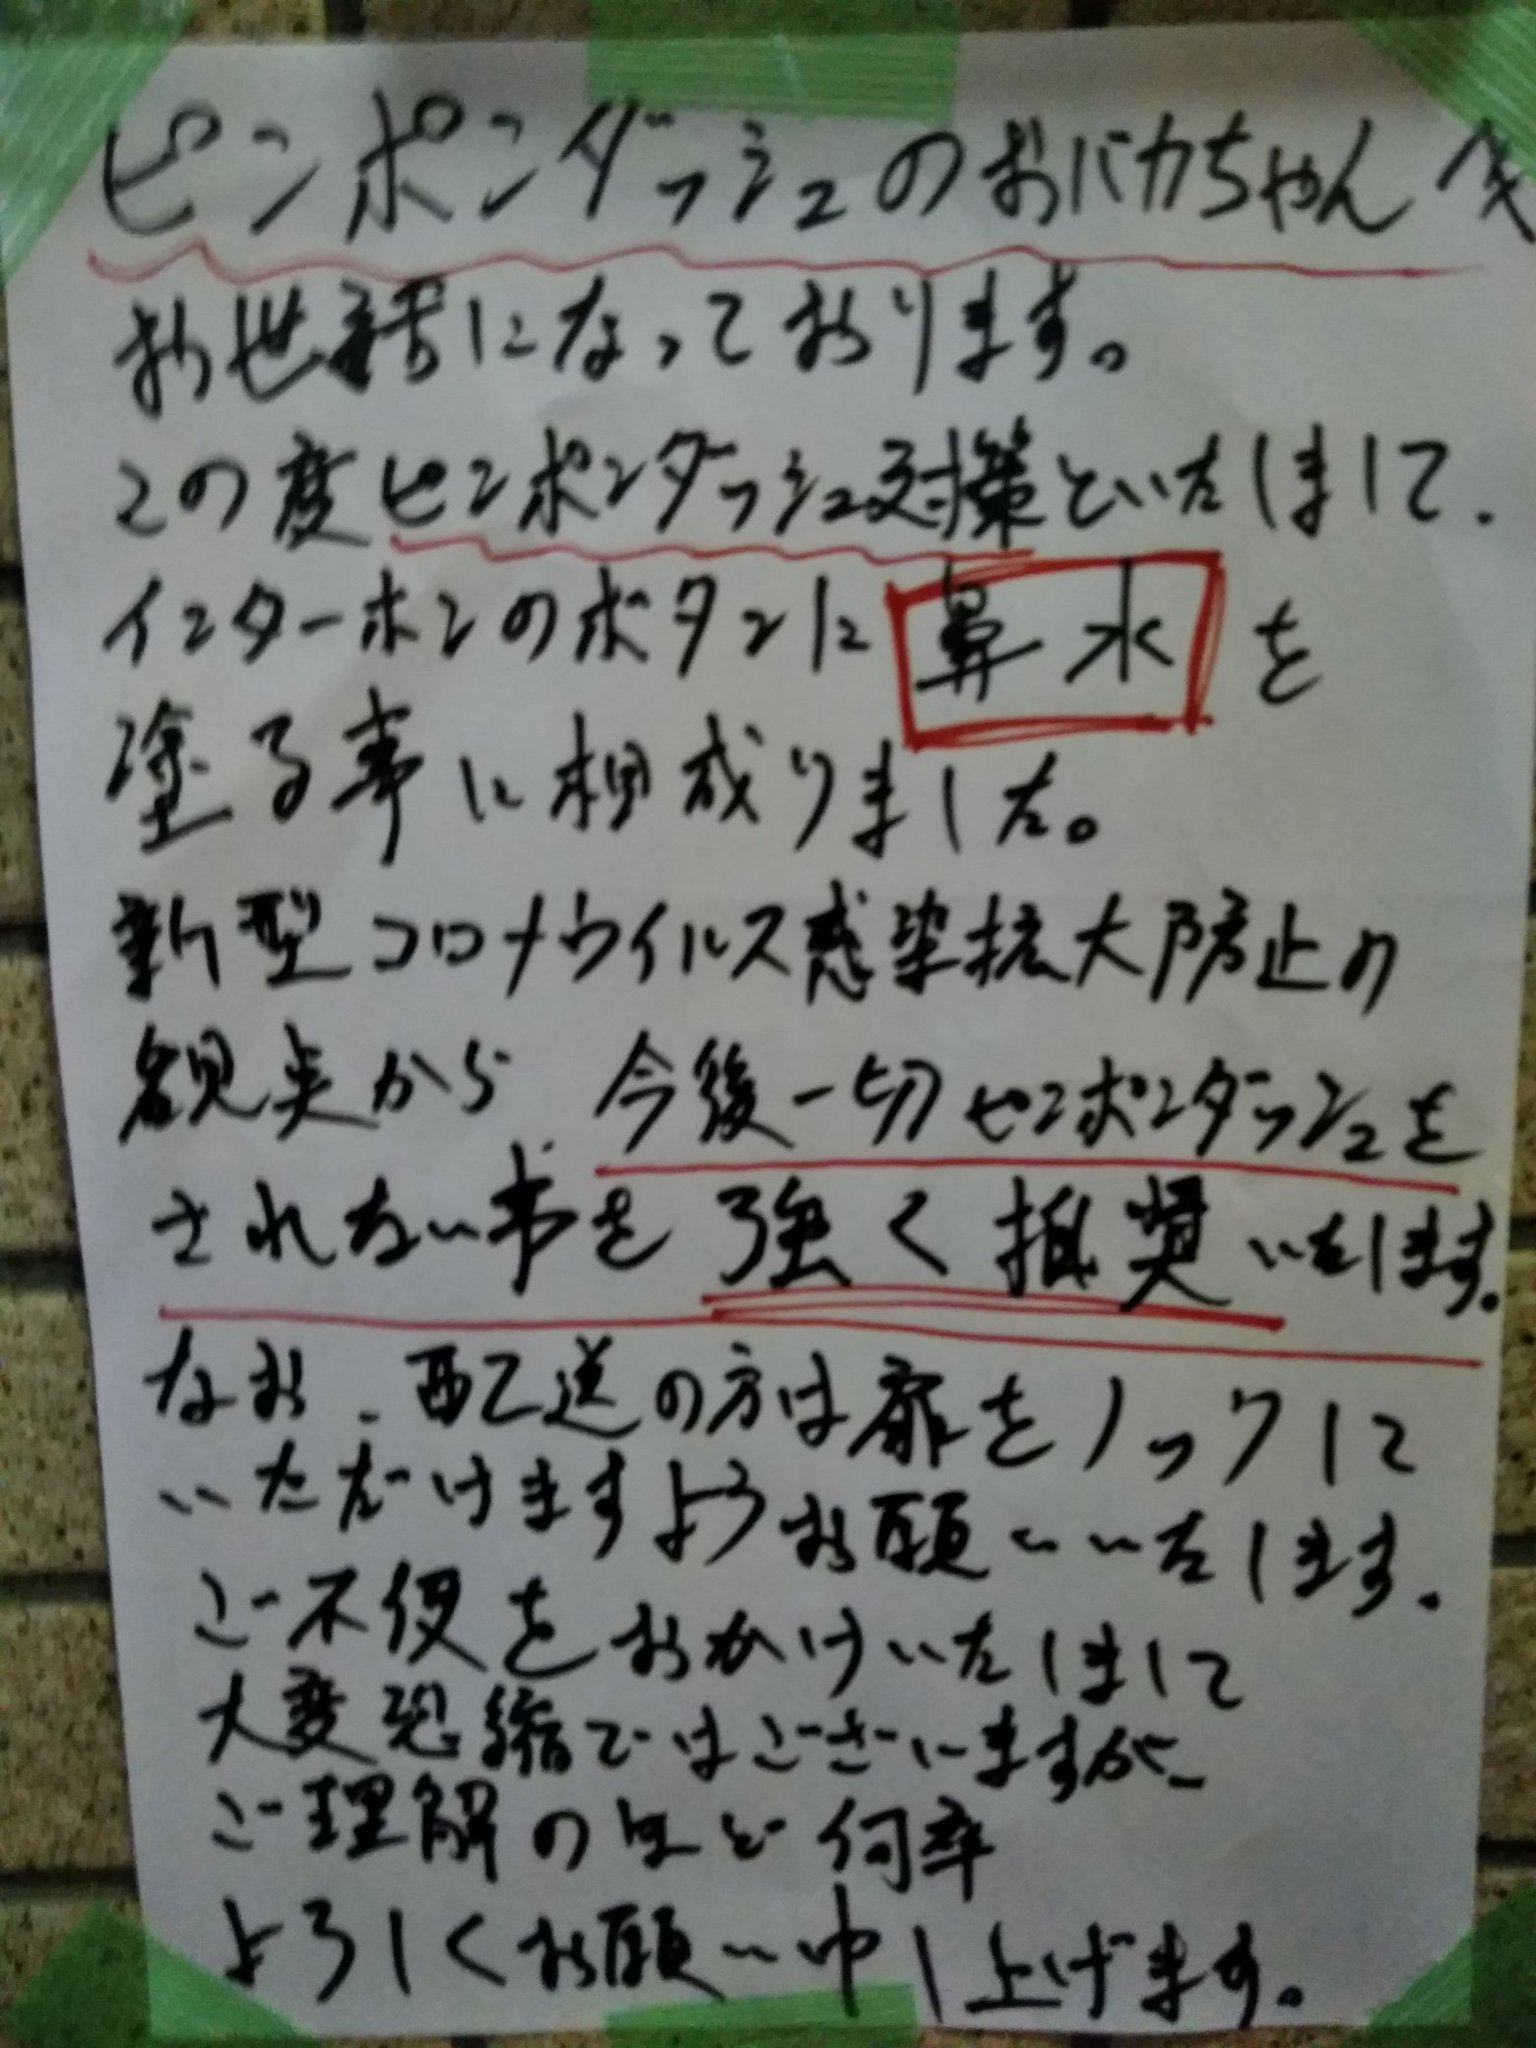 ピンポンダッシュのおバカちゃんへ
お世話になっております。
この度ピンポンダッシュ対策といたしまして、
インターホンのボタンに鼻水を
塗る事に相成りました。
新型コロナウイルス感染拡大防止の
観点から 今後一切ピンポンダッシュを
されない事を強く推奨いたします。
なお、配送の方は扉をノックして
いただけますようお願いいたします。
ご不便をおかけいたしまして
大変恐縮ではございますが、
ご理解のほど何卒
よろしくお願い申し上げます。